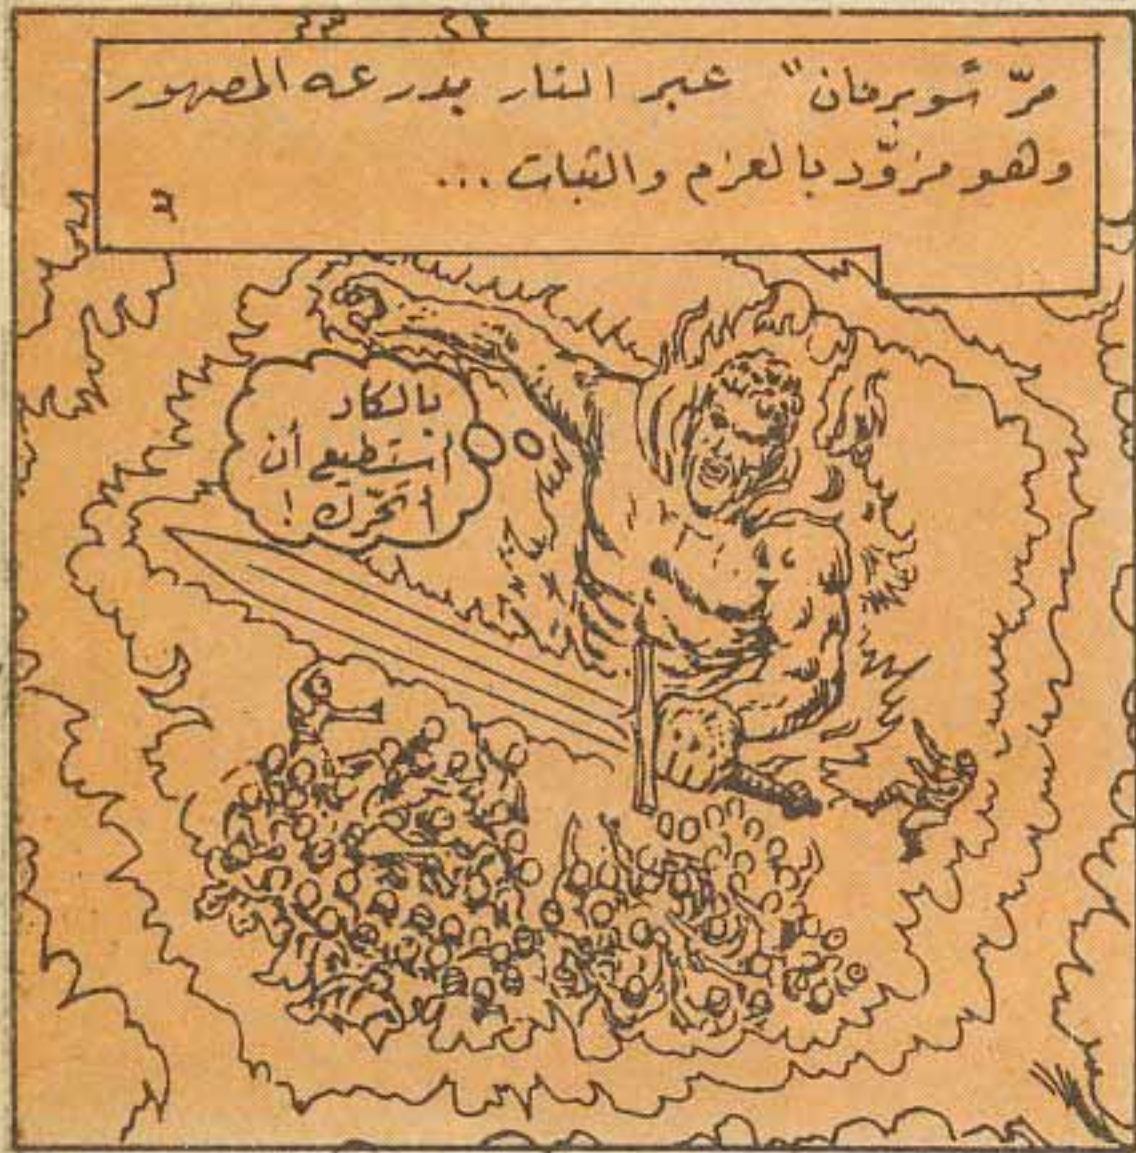 مرّ "سوبرمان" عبر النار بدرعه المصهور
وهو مزوّد بالعزم والثبات...
بالكاد
أستطيع أن
أتحرّك !